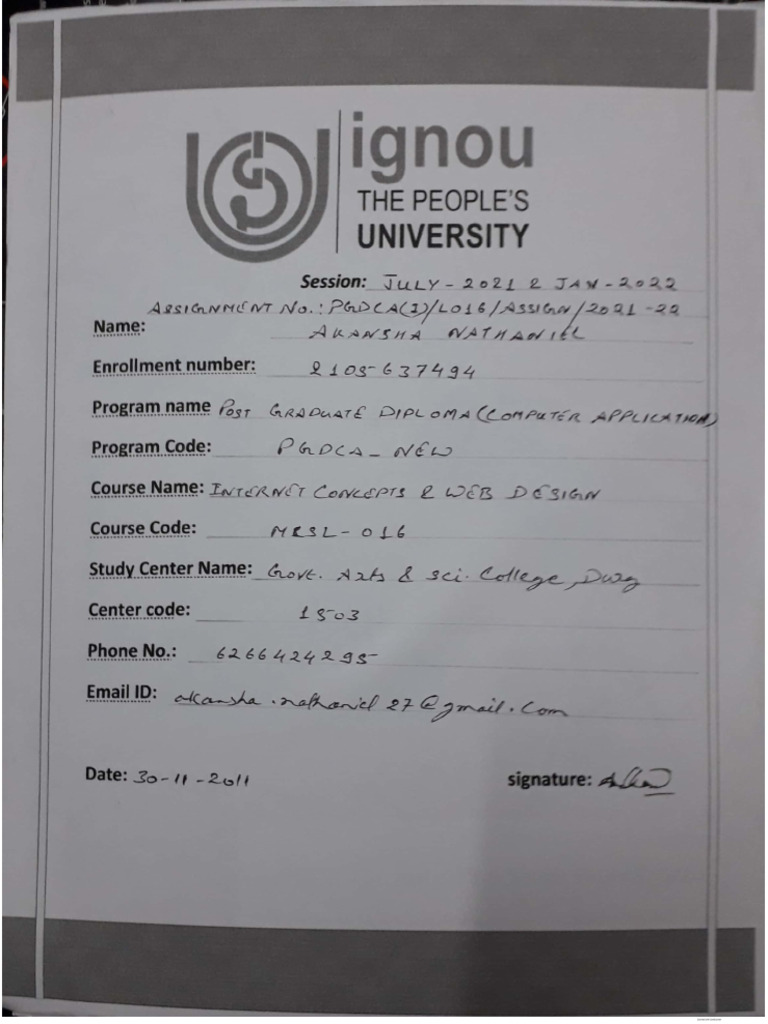 ignou
THE PEOPLE'S
UNIVERSITY
Session: JULY - 2021 & JAN - 2022
ASSIGNMENT NO.: PGDCA(I)/L016/ASSIGN/2021-22
Name: AKANSHA NATHANIEL
Enrollment number: 2105637494
Program name POST GRADUATE DIPLOMA (COMPUTER APPLICATION)
Program Code: PGDCA_NEW
Course Name: INTERNET CONCEPTS & WEB DESIGN
Course Code: MCSL-016
Study Center Name: Govt. Arts & Sci. College, Durg
Center code: 1503
Phone No.: 6266424295
Email ID: akansha.nathaniel27@gmail.com
Date: 30-11-2011
signature: